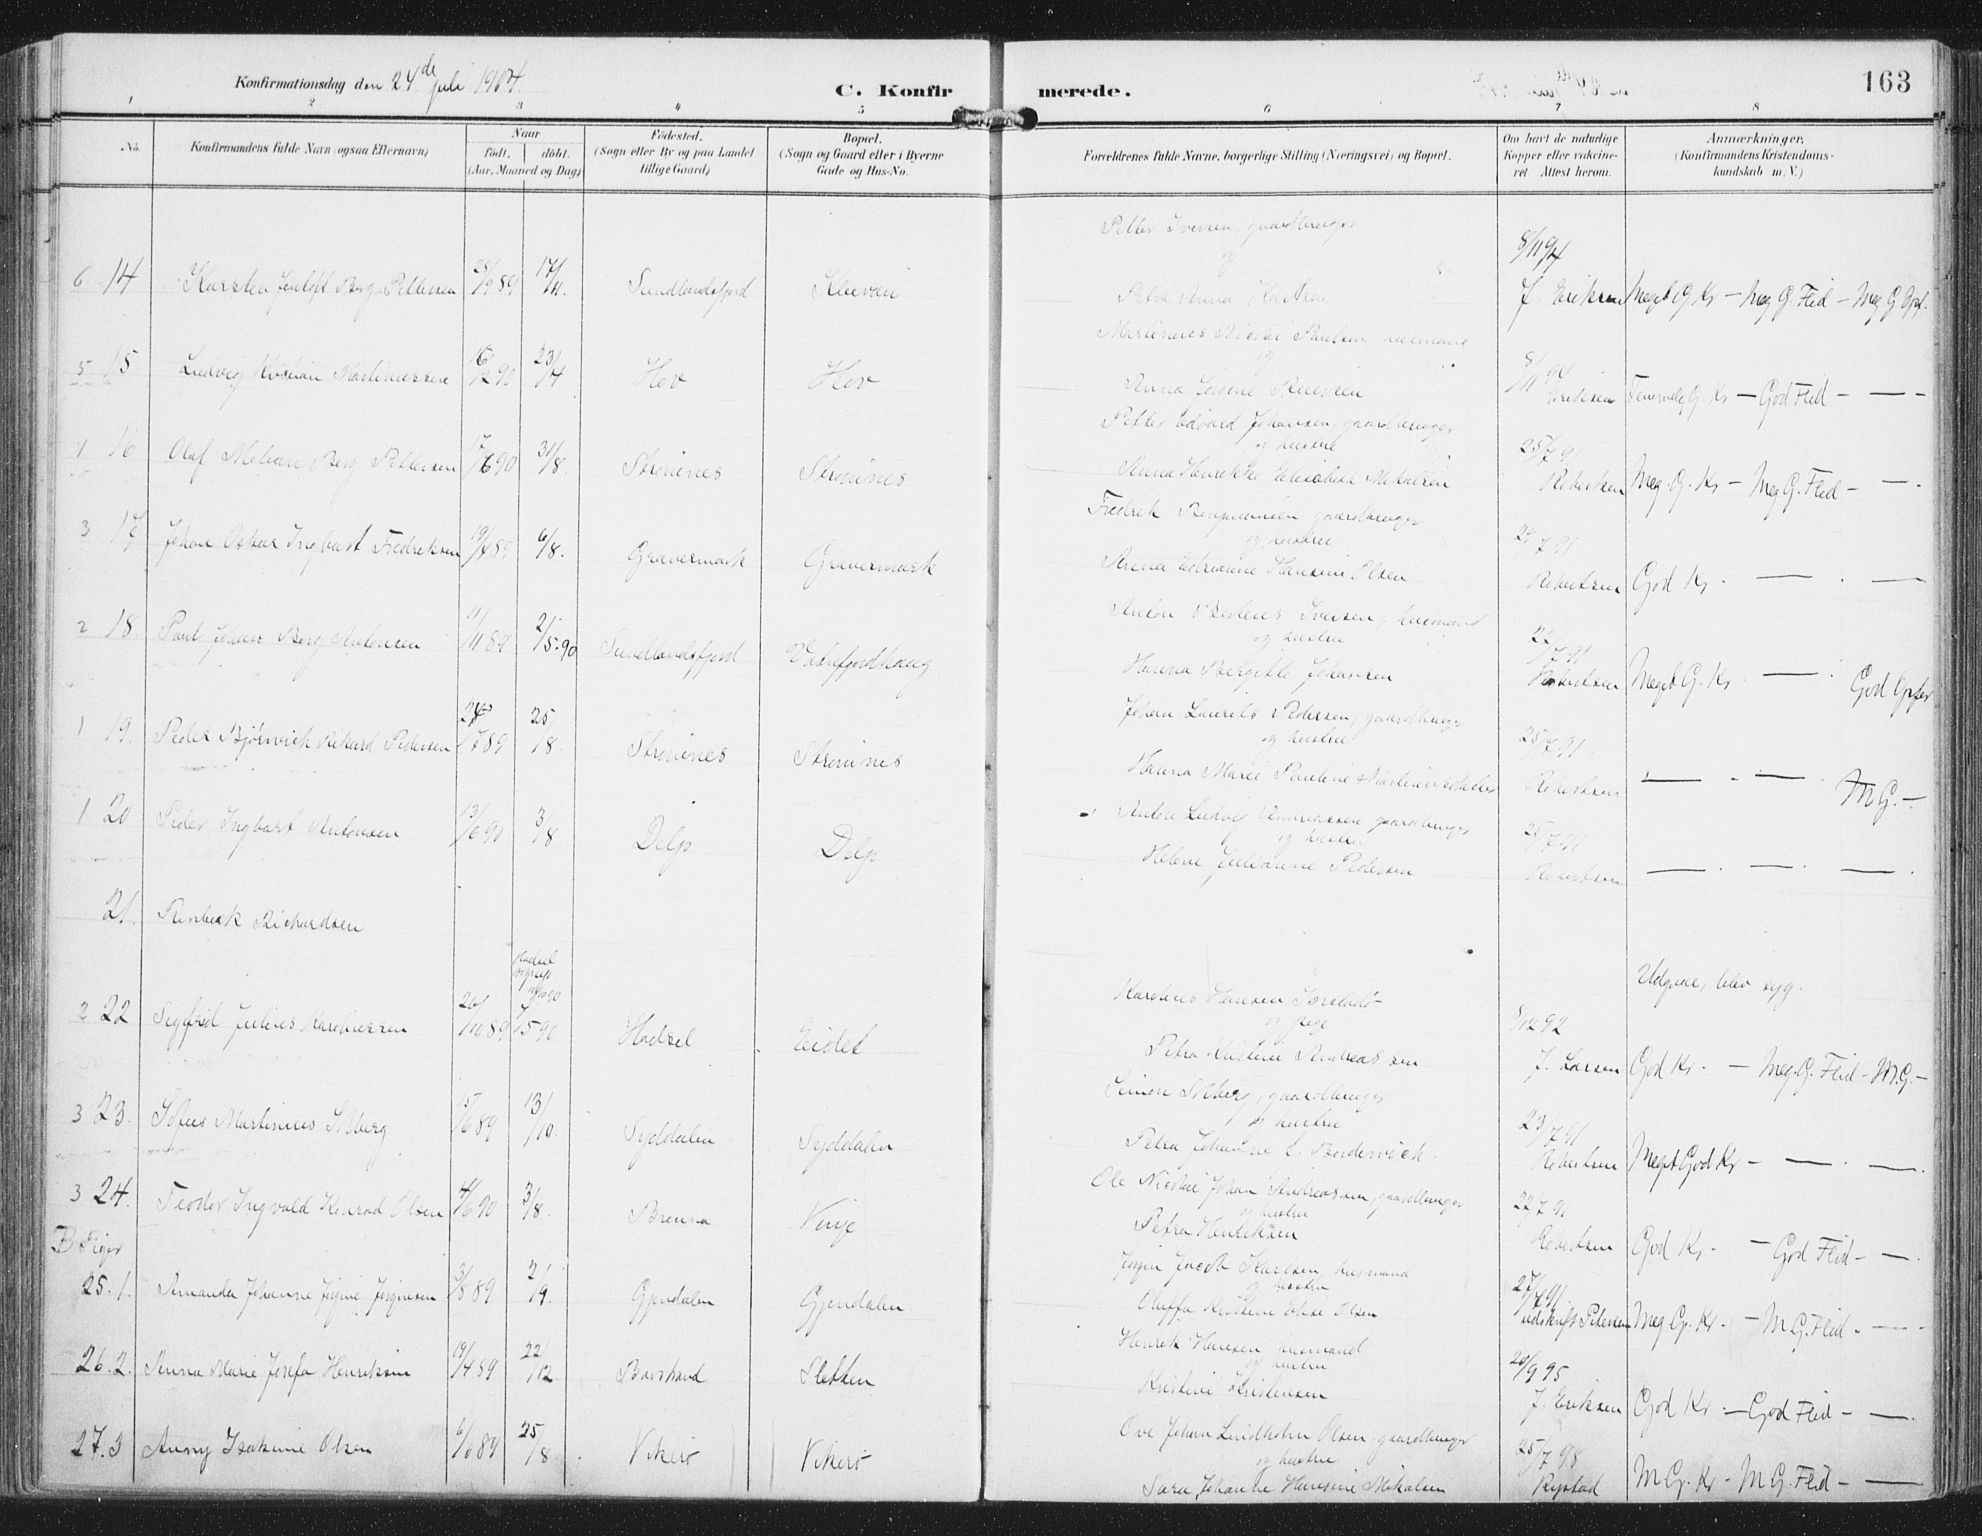 Konfirmationsdag den 24de juli 1904.
C. Konfirmerede.
163
1 2 3 4 5 6 7 8
No.
Konfirmandens fulde Navn (ogsaa Efternavn)
Naar
født. døbt.
(Aar, Maaned og Dag)
Fødested.
(Sogn eller By og paa Landet
tillige Gaard)
Bopæl.
(Sogn og Gaard eller i Byerne
Gade og Hus-No.
Forældrenes fulde Navne, borgerlige Stilling (Næringsvei) og Bopæl.
Om havt de naturlige
Kopper eller vakcine-
ret Attest herom.
Anmærkninger,
(Konfirmandens Kristendoms-
kundskab m. V.)
Petter Iversen, gaardbruger
8/11 94
6 14 Karsten Jentoft Berg Pettersen 28/9 89 17/11 Sundlandsfjord
Petra Anna
J. Eriksen Meget G. Kr - Meg G. Flid - Meg G Opf.
Martinus Nicolai Paulsen, husmand
og
8/11 94
5 15 Ludvig Martinussen 16/2 90 23/4 Hov Hov
Anna
Eriksen G. Kr - God Flid - —
Petter Edvard Johansen, gaardbruger
og hustru
25/7 91
4 16 Olaf Berg Pettersen 17/6 90 31/8. Strøines Strøines
Anna Henrikke Elisabeth Mikalsen
Robertsen Meg. G. Kr - Meg G. Flid - —.
Fredrik gaardbruger
og hustru
29/7 91
3 17 Johan Oskar Ingbart Fredriksen 19/4 89 6/8. Gravermark Gravermark
Hansine Olsen
Robertsen God Kr. — . —
Anton Iversen, husmand
og hustru
22/7 91
2 18 Paul Johan Berg Antonsen 11/11 89 2/5-90 Sundlandsfjord Vatnfjordhaug
Hanna Bergitte Johansen
Robertsen Meget G. Kr. — . God Opfør
Johan Laurits Pedersen, gaardbruger
og hustru
25/7 91.
1 19. Peder Bjørnvick Rikard Pedersen 24/7 89 25/8. Strøines Strøines
Hanna Marie Pauline Martinusdatter
Robertsen — . — . M G. -
Anton Ludvig Andreassen gaardbruger
og hustru
25/7 91
1 20 Peder Ingbart Antonsen 13/6 90 3/8 Delp Delp
Helene Julianne Pedersen
Robertsen — . — . —
21. Rinbeck Richardsen
Udgaae, blev syg.
Hadsel
Karstinus Hansen
og pige
8/12 92
2 22 Sigfrid Julius Karstinussen 26/10 89 /5 90 Hadsel Eidet
Petra Kristine Andreassen
J. Larsen God Kr. - Meg. G. Flid - M. G. -
Simon Solberg, gaardbruger
og hustru
23/7 91
3 23. Sofus Martinius Solberg 15/6 89 13/10. Syddalen Syddalen
Petra Johanne
Robertsen Meget God Kr - — . —.
Ole Nicolai Johan Andreassen, gaardbruger
og hustru
22/7 91
3 24. Teodor Ingvald Konrad Olsen 4/6 90 3/8. Brenna Vinje
Petra Henriksen
Robertsen God Kr. - God Flid - —.
B Piger
Jørgin Jacob Karlsen, husmand
og hustru
27/7 91.
25. 1. Amanda Johanne Jørgine Jørginsen 3/5 89 2/9. Gjendalen Gjendalen
Oluffa Kristine Elise Olsen
udskrift Pedersen Meg G. Kr. - M. G. Flid - —
Henrik Hansen, husmand
og hustru
20/9 95
26. 2. Anna Marie Josefa Henriksen 19/4 89 22/12 Borstrand Sletten
Kristine Kristensen
J. Eriksen God Kr. - God Flid - —.
Ove Johan Lindholm Olsen, gaardbruger
og hustru
25/7 98
27. 3 Anny Isakine Olsen 6/6 89 25/8. Vikerø Vikerø
Sara Johanne Hansine Mikalsen
Rystad M G. Kr - M G. Flid - —